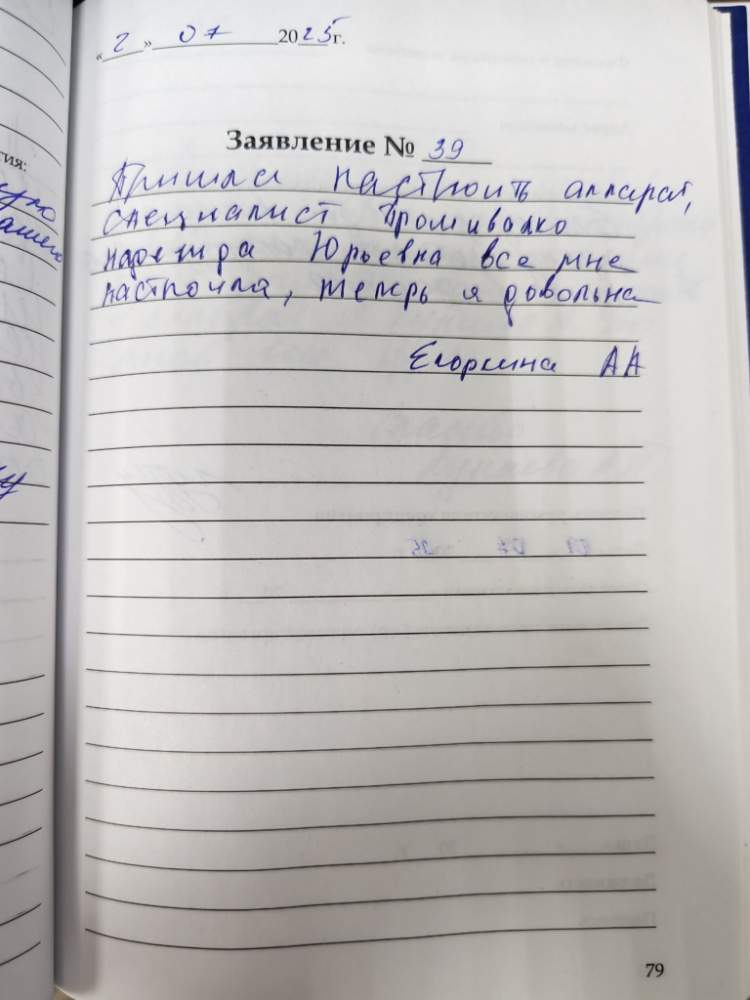 « 2 » 07 2025 г.
Заявление № 39
Пришла настроить аппарат,
специалист
Надежда Юрьевна все мне
настроила, теперь я довольна
Егоркина АА
тия:
79